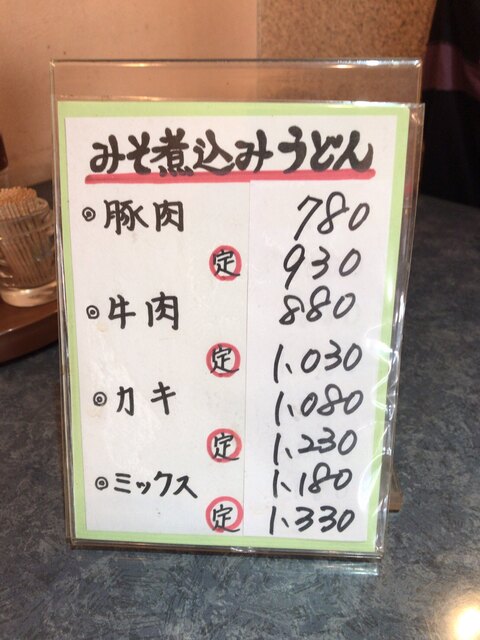 みそ煮込みうどん
◎豚肉 780
定 930
◎牛肉 880
定 1,030
◎カキ 1,080
定 1,230
◎ミックス 1,180
定 1,330